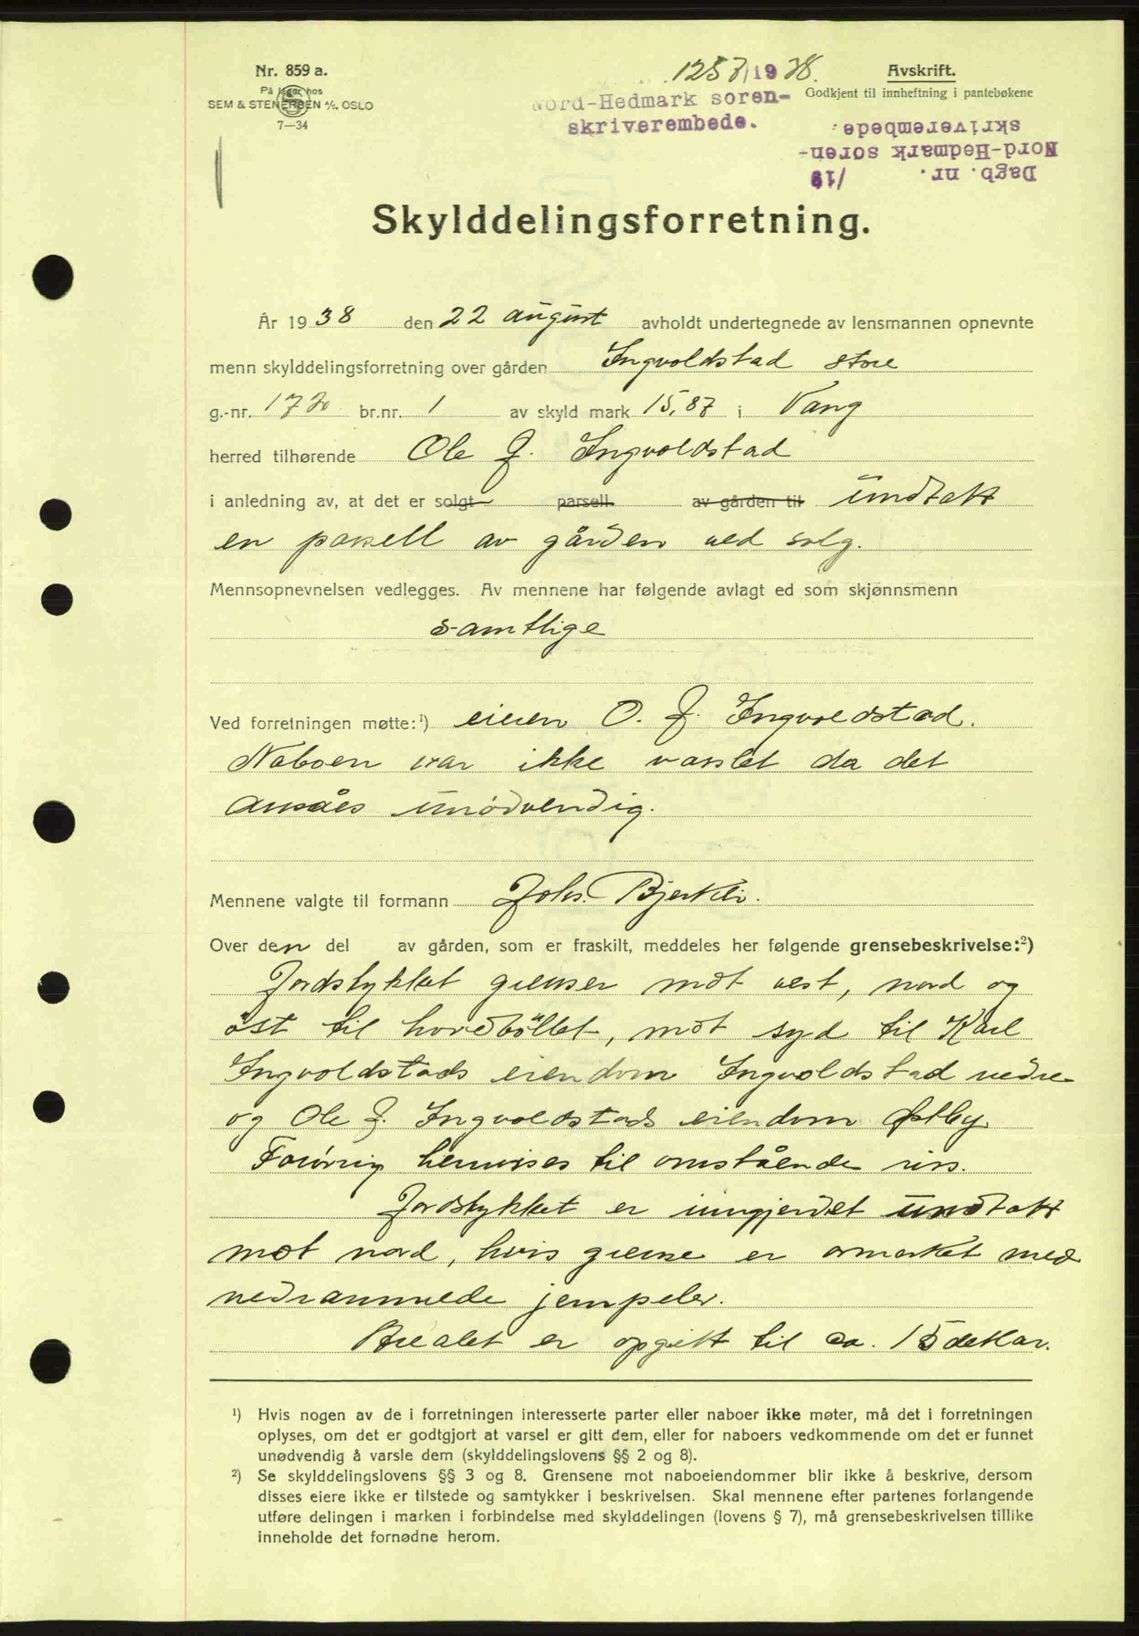 Nr. 859 a.
På lager hos
SEM & STENERSEN A/S, OSLO
7—34
1257/1938.
Nord-Hedmark soren-
skriverembede.
Avskrift.
Godkjent til innheftning i pantebøkene
Dagb. nr. /19
Nord-Hedmark soren-
skriverembede.
Skylddelingsforretning.
År 1938 den 22 august avholdt undertegnede av lensmannen opnevnte
menn skylddelingsforretning over gården Ingvoldstad store
g.-nr. 170 br.nr. 1 av skyld mark 15,87 i Vang
herred tilhørende Ole J. Ingvoldstad
i anledning av, at det er solgt parsell av gården til undtatt
en parsell av gården ved salg.
Mennsopnevnelsen vedlegges. Av mennene har følgende avlagt ed som skjønnsmenn
samtlige
Ved forretningen møtte:¹) eieren O. J. Ingvoldstad.
Naboen var ikke varslet da det
ansåes unødvendig.
Mennene valgte til formann Johs. Bjerkli.
Over den del av gården, som er fraskilt, meddeles her følgende grensebeskrivelse:²)
Jordstykket grenser mot vest, nord og
øst til hovedbøllet, mot syd til Karl
Ingvoldstads eiendom Ingvoldstad nedre
og Ole J. Ingvoldstads eiendom Østby.
Forøvrig henvises til omstående riss.
Jordstykket er inngjerdet undtatt
mot nord, hvis grense er avmerket med
nedrammede jernpeler.
Arealet er opgitt til ca. 15 dekar.
¹) Hvis nogen av de i forretningen interesserte parter eller naboer ikke møter, må det i forretningen
oplyses, om det er godtgjort at varsel er gitt dem, eller for naboers vedkommende om det er funnet
unødvendig å varsle dem (skylddelingslovens §§ 2 og 8).
²) Se skylddelingslovens §§ 3 og 8. Grensene mot naboeiendommer blir ikke å beskrive, dersom
disses eiere ikke er tilstede og samtykker i beskrivelsen. Skal mennene efter partenes forlangende
utføre delingen i marken i forbindelse med skylddelingen (lovens § 7), må grensebeskrivelsen tillike
inneholde det fornødne herom.